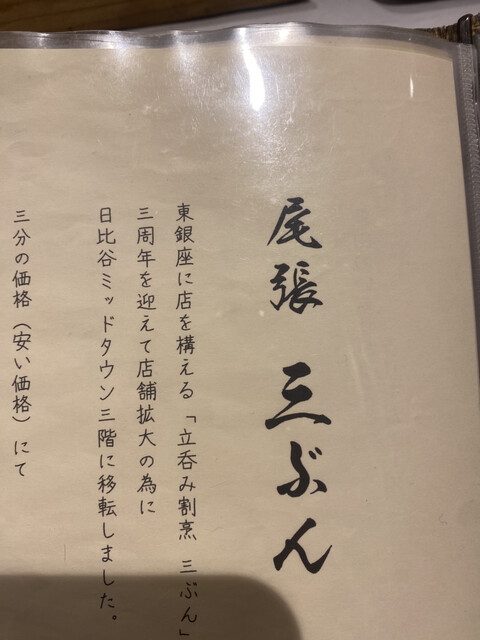 尾張 三ぶん
東銀座に店を構える「立呑み割烹 三ぶん」
三周年を迎えて店舗拡大の為に
日比谷ミッドタウン三階に移転しました。
三分の価格（安い価格）にて